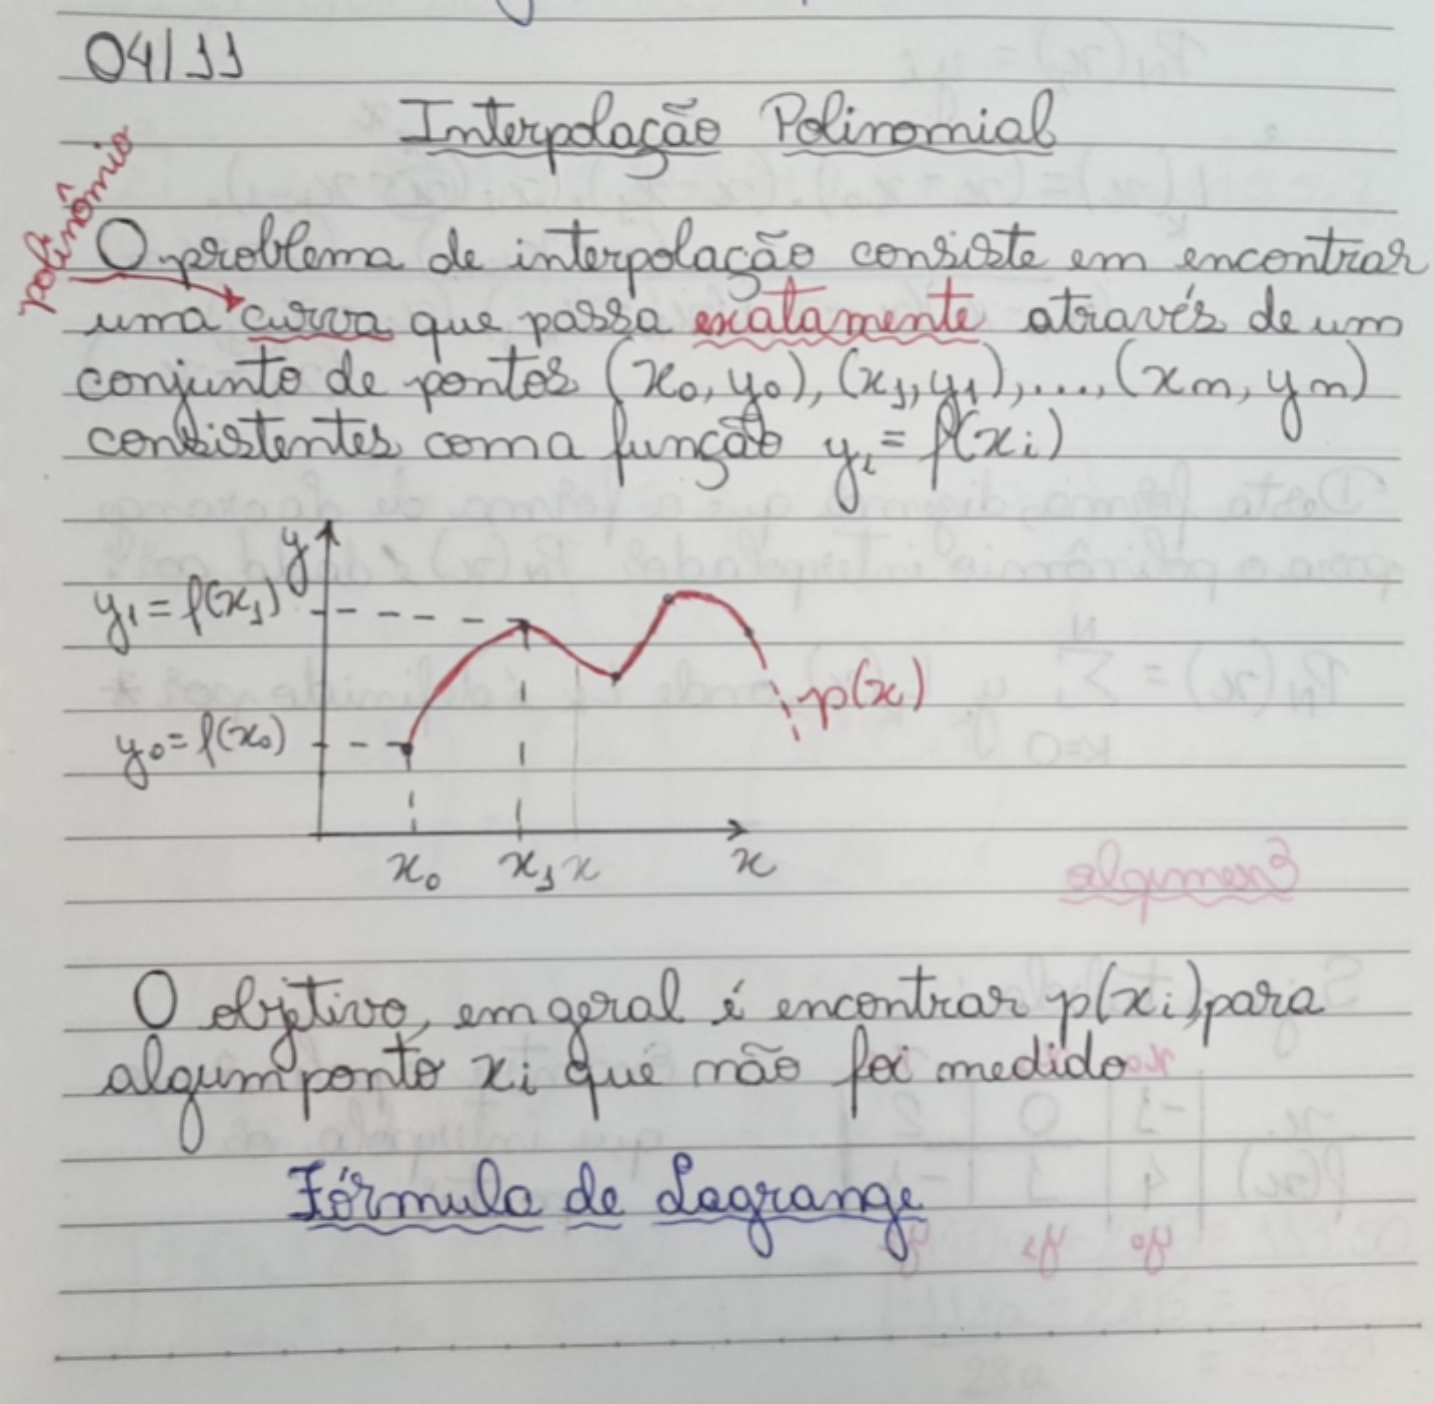 04/11
Interpolação Polinomial
polinômio
O problema de interpolação consiste em encontrar
uma curva que passa exatamente através de um
conjunto de pontos (x0, y0), (x1, y1), ..., (xn, yn)
consistentes com a função yi = f(xi)
y
y1 = f(x1)
p(x)
y0 = f(x0)
x0 x1 x x
O objetivo, em geral é encontrar p(xi) para
algum ponto xi que não foi medido
Fórmula de Lagrange